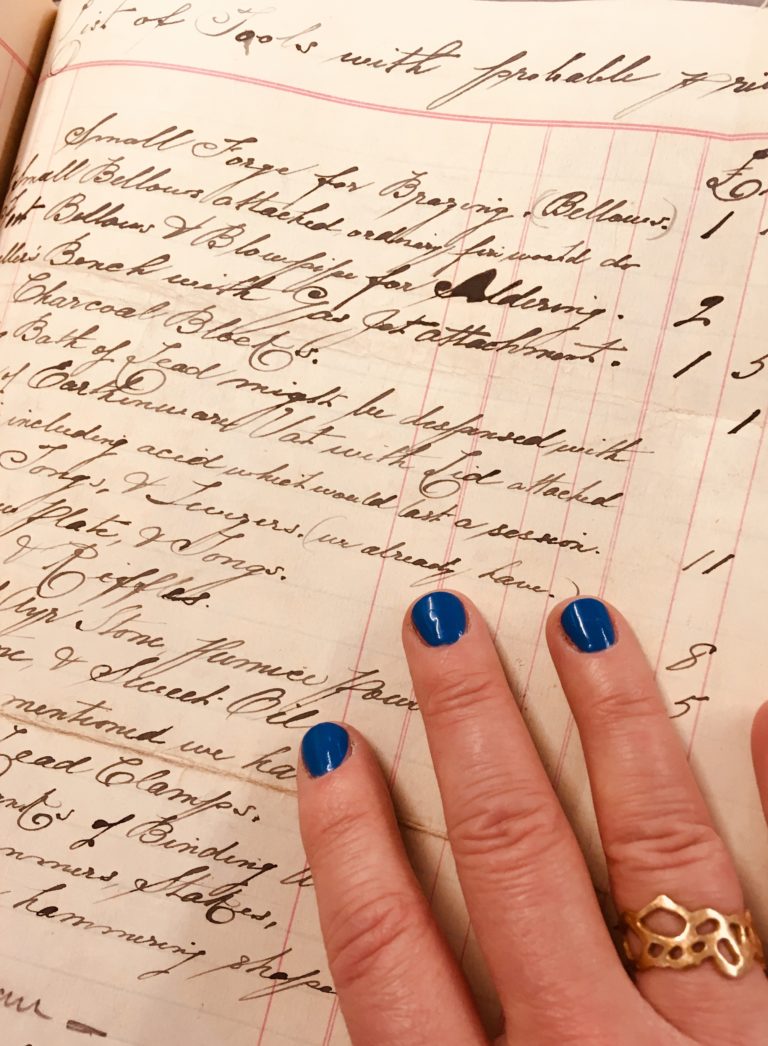 List of Tools with probable
£
Small Forge for Brazing. (Bellows.) 1
Small Bellows attached ordinary fire would do
Foot Bellows & Blowpipe for Soldering. 2
Bench with Gas Jet attachment. 1 5
Charcoal Blocks. 1
Bath of Lead might be dispensed with
of Earthinware Vat with Lid attached
including acid which would last a session. 11
Tongs, & Twezers. (we already have.)
Plate, & Tongs. 8
& Riffles. 5
Ayr Stone Pumice
& Sweet Oil
mentioned we ha
Lead Clamps.
of Binding
Stakes,
hammering shape